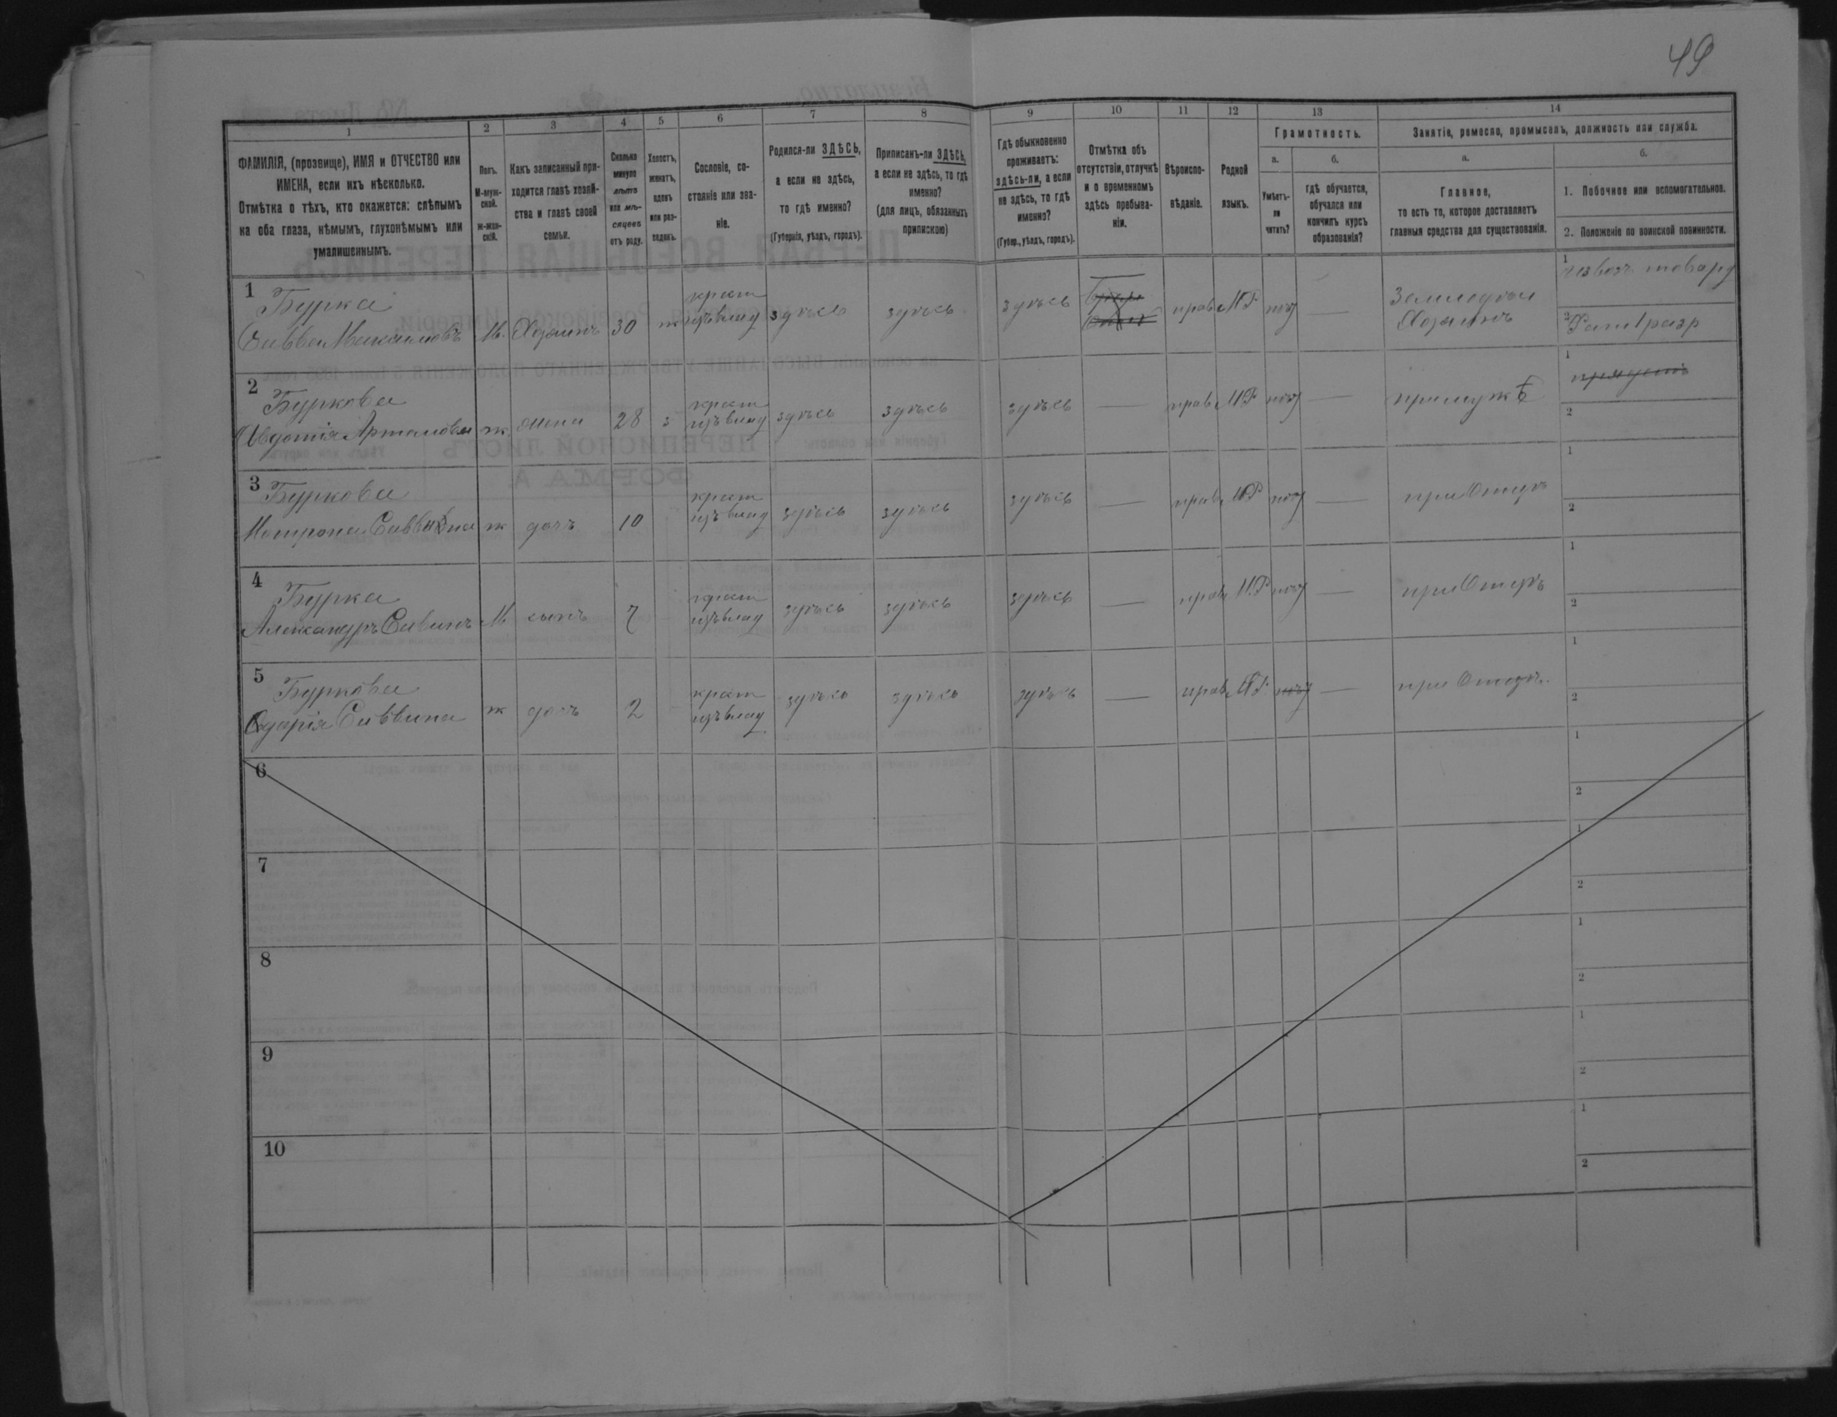 49
1
2
3
4
5
6
7
8
9
10
11
12
13
14
ФАМИЛІЯ, (прозвище), ИМЯ и ОТЧЕСТВО или
ИМЕНА, если ихъ нѣсколько.
Отмѣтка о тѣхъ, кто окажется: слѣпымъ
на оба глаза, нѣмымъ, глухонѣмымъ или
умалишеннымъ.
Полъ.
М-муж-
ской.
ж-жен-
скій.
Какъ записанный при-
ходится главѣ хозяй-
ства и главѣ своей
семьи.
Сколько
минуло
лѣтъ
или мѣ-
сяцевъ
отъ роду.
Холостъ,
женатъ,
вдовъ
или раз-
веденъ.
Сословіе, со-
стояніе или зва-
ніе.
Родился-ли ЗДѢСЬ,
а если не здѣсь,
то гдѣ именно?
(Губернія, уѣздъ, городъ).
Приписанъ-ли ЗДѢСЬ,
а если не здѣсь, то гдѣ
именно?
(для лицъ, обязанныхъ
припискою)
Гдѣ обыкновенно
проживаетъ:
здѣсь-ли, а если
не здѣсь, то гдѣ
именно?
(Губер., уѣздъ, городъ).
Отмѣтка объ
отсутствіи, отлучкѣ
и о временномъ
здѣсь пребыва-
ніи.
Вѣроиспо-
вѣданіе.
Родной
языкъ.
Грамотность.
а.
б.
Умѣетъ-
ли
читать?
гдѣ обучается,
обучался или
кончилъ курсъ
образованія?
Занятіе, ремесло, промыселъ, должность или служба.
а.
б.
Главное,
то есть то, которое доставляетъ
главныя средства для существованія.
1. Побочное или вспомогательное.
2. Положеніе по воинской повинности.
1 Бурка
Савва Максимовъ М. Хозяинъ 30 ж крест изъ влад здѣсь здѣсь здѣсь прав М.Р. — Хозяинъ
1
2 Рат 1 разр
2 Буркова
Авдотія Артамова ж жена 28 з крест изъ влад здѣсь здѣсь здѣсь — прав М.Р. — при мужѣ
1
2
3 Буркова
Матрона Саввина ж дочь 10 крест изъ влад здѣсь здѣсь здѣсь — прав М.Р. — при Отцѣ
1
2
4 Бурка
Александръ Савинъ М сынъ 7 крест изъ влад здѣсь здѣсь здѣсь — прав М.Р. — при Отцѣ
1
2
5 Буркова
Одарія Саввина ж дочь 2 крест изъ влад здѣсь здѣсь здѣсь — прав М.Р. — при Отцѣ
1
2
6
1
2
7
1
2
8
1
2
9
1
2
10
1
2